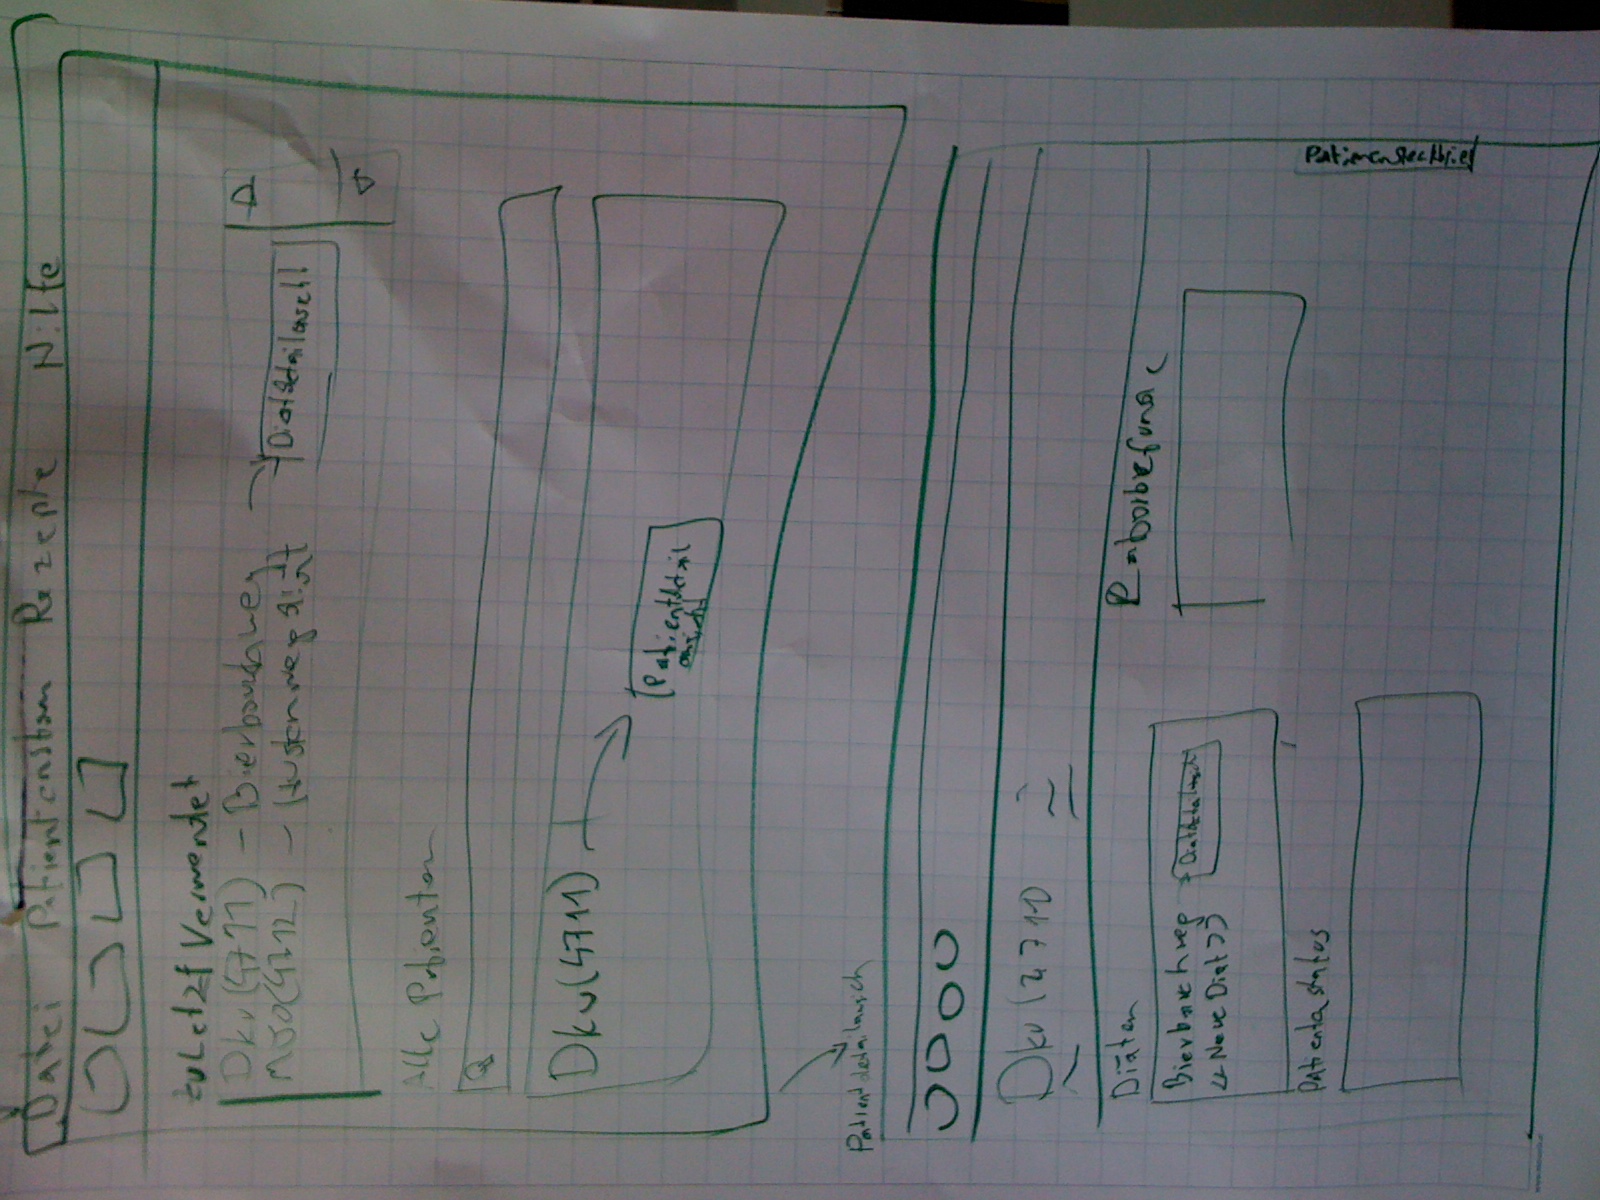 Datei Patientenstam Rezepte Hilfe
zuletzt Verwendet
Dkv(4711) - Bierbauchweg
MJO(4712) - Hustenwegdiät
Diätdetailansicht
Alle Patienten
Dkv(4711)
Patientdetail
ansicht
Patientdetailansich
Dkv(4711)
Diäten
Laborbefunde
Bierbauchweg
Diätdetailansich
<<Neue Diät>>
Patientenstatus
Patientensteckbrief